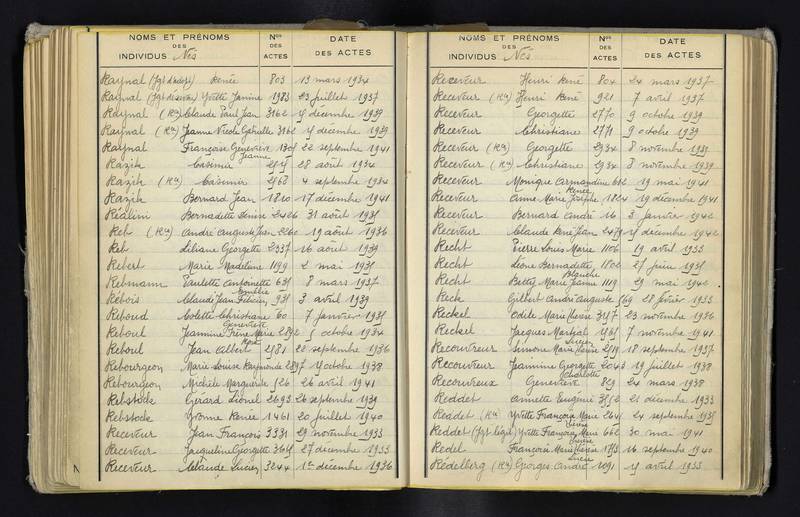 NOMS ET PRÉNOMS
DES
INDIVIDUS Nés
Nos
DES
ACTES
DATE
DES ACTES
Raynal Renée 803 13 mars 1934
Raynal Yvette Janine 1983 23 juillet 1937
Raynal (Ra) Claude Paul Jean 3162 décembre 1939
Raynal (Ra) Jeanne Nicole Gabrielle 3162 décembre 1939
Raynal Françoise Geneviève Jeanne 22 septembre 1941
Razik Casimir 28 août 1934
Razik (Ra) Casimir 4 septembre 1934
Razik Bernard Jean 1810 17 décembre 1941
Réalini Bernadette Denise 2426 31 août
Reb (Ra) André Auguste Jean 2260 19 août 1936
Reb Liliane Georgette 2337 16 août 1939
Rebert Marie Madeleine 1199 2 mai
Rebmann Paulette Antoinette Emélie 8 mars 1937
Rébois Claude Jean 3 avril 1939
Reboud Colette Christiane 60 7 janvier
Reboul Jeannine Irène Marie Geneviève Rose 2892 octobre 1934
Reboul Jean Albert 22 septembre 1936
Rebourgeon Marie Louise Raymonde 2897 octobre 1938
Rebourgeon Michèle Marguerite 26 avril 1941
Rebstock Gérard Lionel 2693 26 septembre 1939
Rebstock Yvonne Renée 1461 20 juillet 1940
Receveur Jean François 3331 29 novembre 1933
Receveur Jacqueline Georgette 27 décembre 1933
Receveur Claude Lucien 3244 décembre 1936
NOMS ET PRÉNOMS
DES
INDIVIDUS Nés
Nos
DES
ACTES
DATE
DES ACTES
Receveur Henri René 804 24 mars 1937
Receveur (Ra) Henri René 921 7 avril 1937
Receveur Georgette 2770 9 octobre 1939
Receveur Christiane 2771 9 octobre 1939
Receveur (Ra) Georgette 2934 8 novembre 1939
Receveur (Ra) Christiane 2934 8 novembre 1939
Receveur Monique Armandine Renée 662 19 mai 1941
Receveur Anne Marie Josèphe 1824 19 décembre 1941
Receveur Bernard André 16 3 janvier 1942
Receveur Claude René Jean décembre 1942
Recht Pierre Louis Marie 1106 19 avril 1933
Recht Léone Bernadette 1802 27 juin
Recht Betty Marie Jeanne Blanche 1119 29 mai 1942
Reck Gilbert André Auguste 28 février 1933
Reckel Odile Marie Louise 23 novembre 1936
Reckel Jacques Martial 7 novembre 1941
Recouvreur Simone Marie Louise 18 septembre 1937
Recouvreur Jeannine Georgette Charlotte 2043 19 juillet 1938
Recouvreux Geneviève 829 24 mars 1938
Reddet Annette Eugénie 21 décembre 1933
Reddet (Ra) Yvette Françoise Marie 24 septembre
Reddet Yvette Françoise Marie 662 30 mai 1941
Redel Françoise Marie Louise 16 septembre 1940
Rédelberg (Ra) Georges André 1091 avril 1933